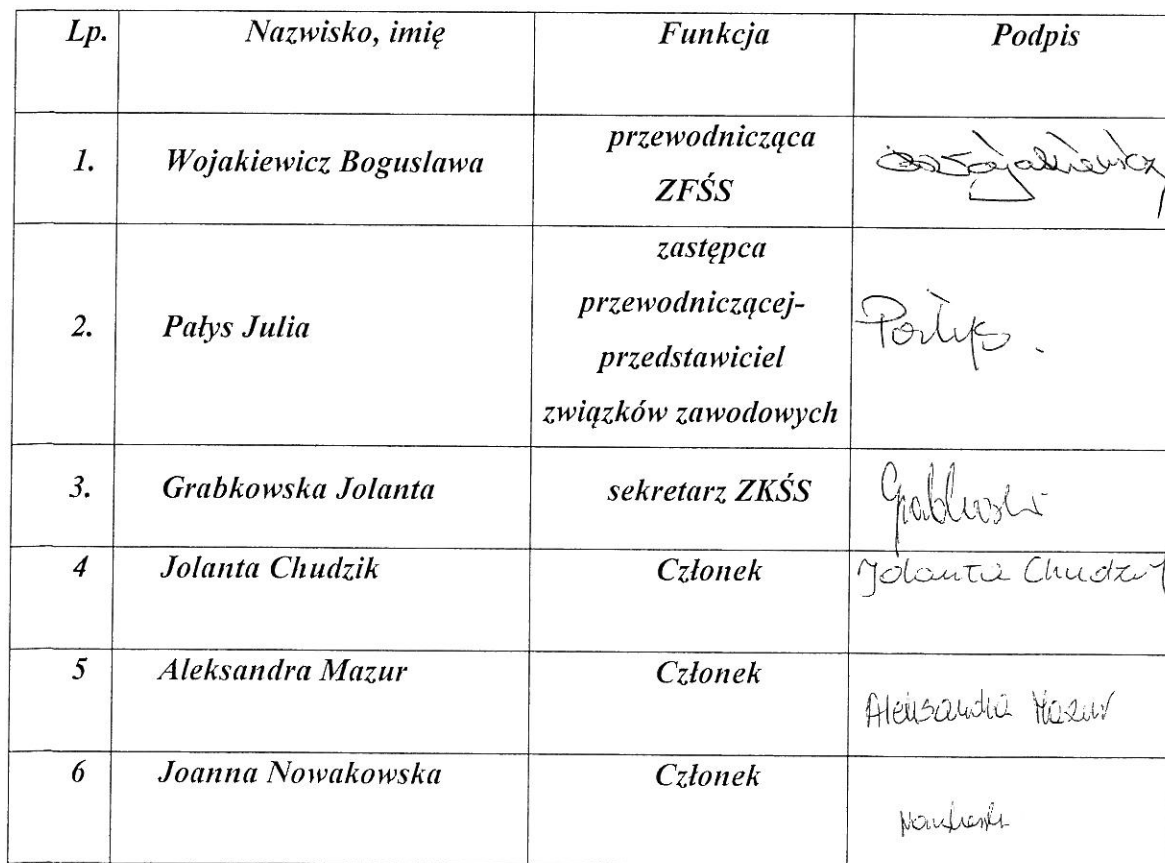 Lp. Nazwisko, imię Funkcja Podpis
1. Wojakiewicz Boguslawa przewodnicząca
ZFŚS
BWojakiewicz
2. Pałys Julia zastępca
przewodniczącej-
przedstawiciel
związków zawodowych
Pałys.
3. Grabkowska Jolanta sekretarz ZKŚS
4 Jolanta Chudzik Członek Jolanta Chudzik
5 Aleksandra Mazur Członek
Aleksandra Mazur
6 Joanna Nowakowska Członek